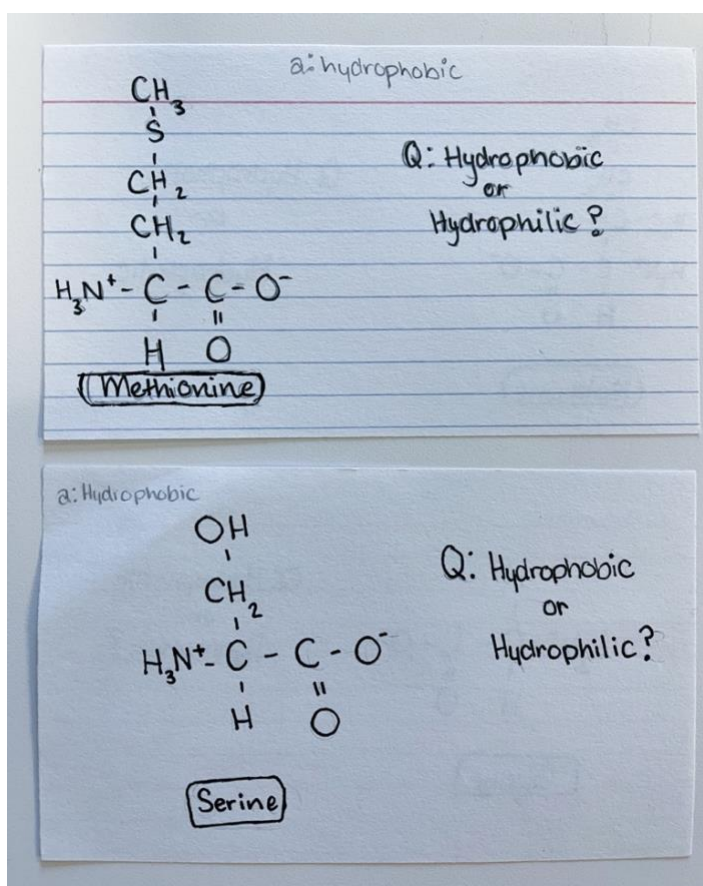 a: hydrophobic
CH3
S
CH2
CH2
H3N+ - C - C - O-
H O
Methionine
Q: Hydrophobic
or
Hydrophilic?
a: Hydrophobic
OH
CH2
H3N+ - C - C - O-
H O
Serine
Q: Hydrophobic
or
Hydrophilic?